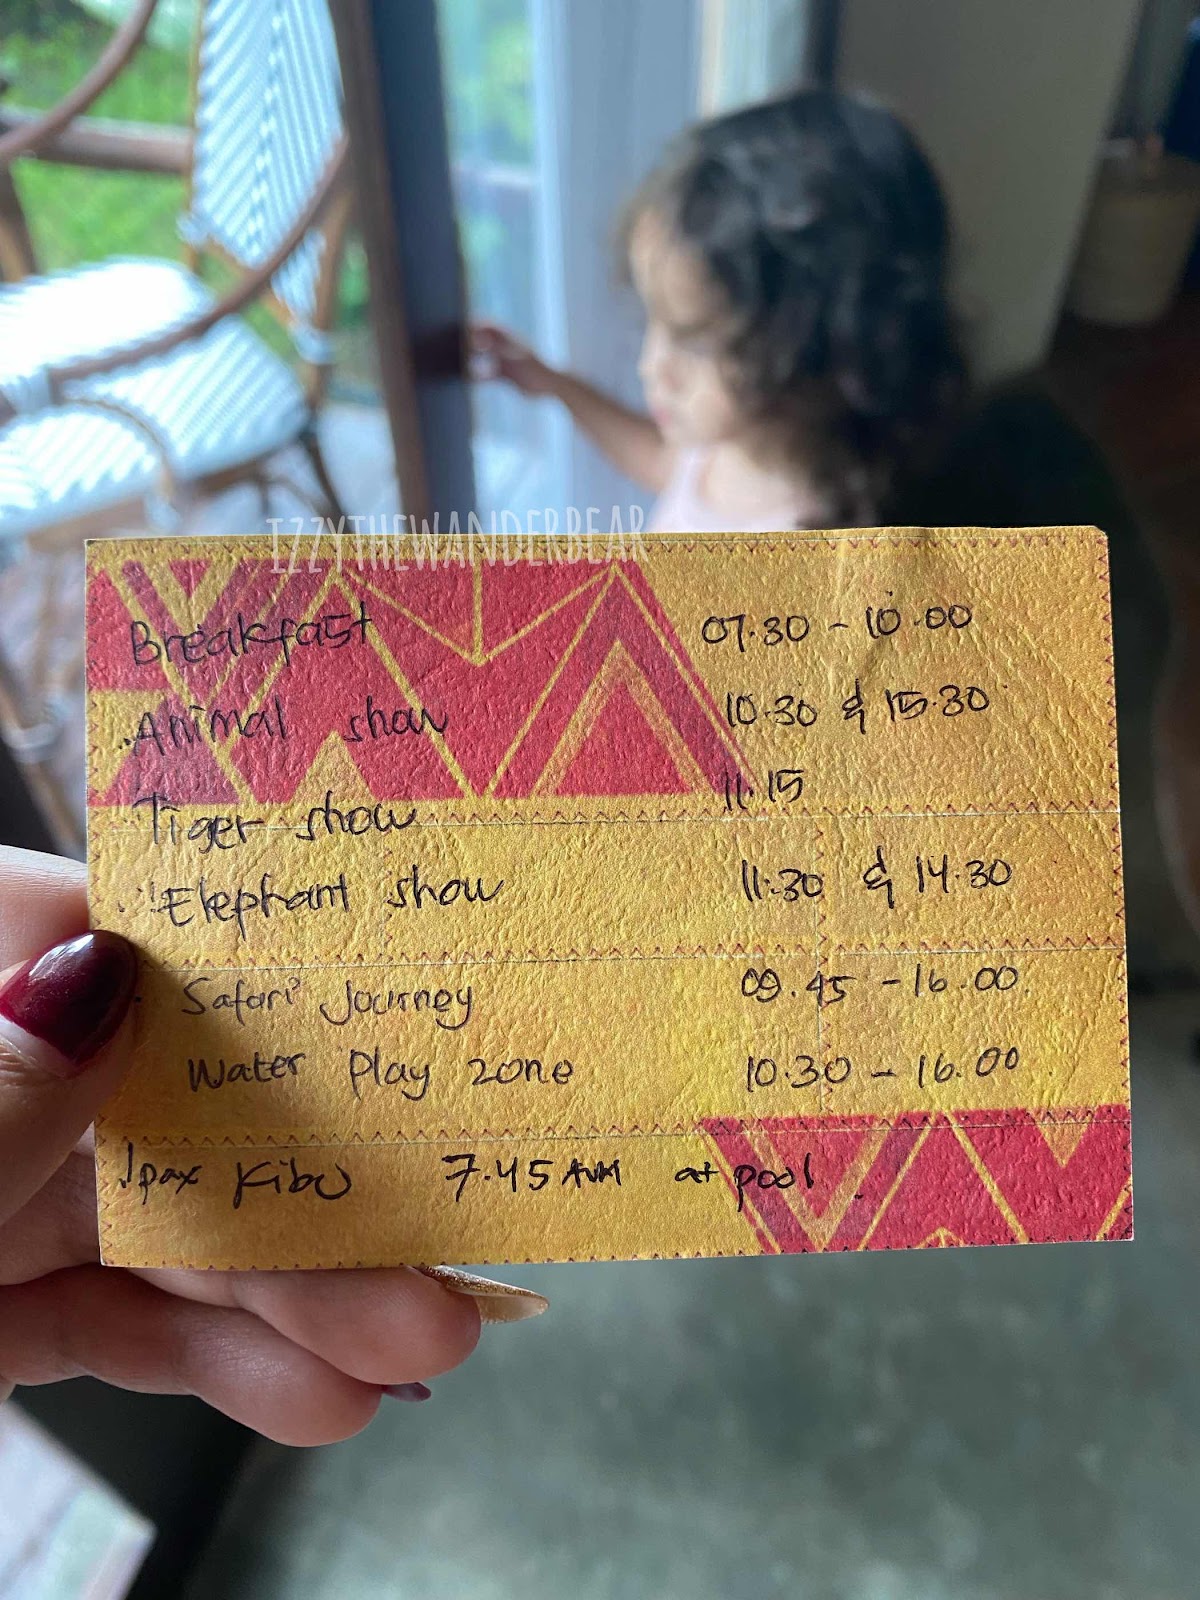 IZZYTHEWANDERBEAR
Breakfast 07.30 - 10.00
Animal show 10.30 & 15.30
Tiger show 11.15
Elephant show 11.30 & 14.30
Safari Journey 09.45 - 16.00
Water Play zone 10.30 - 16.00
1pax Kibo 7.45 AM at pool